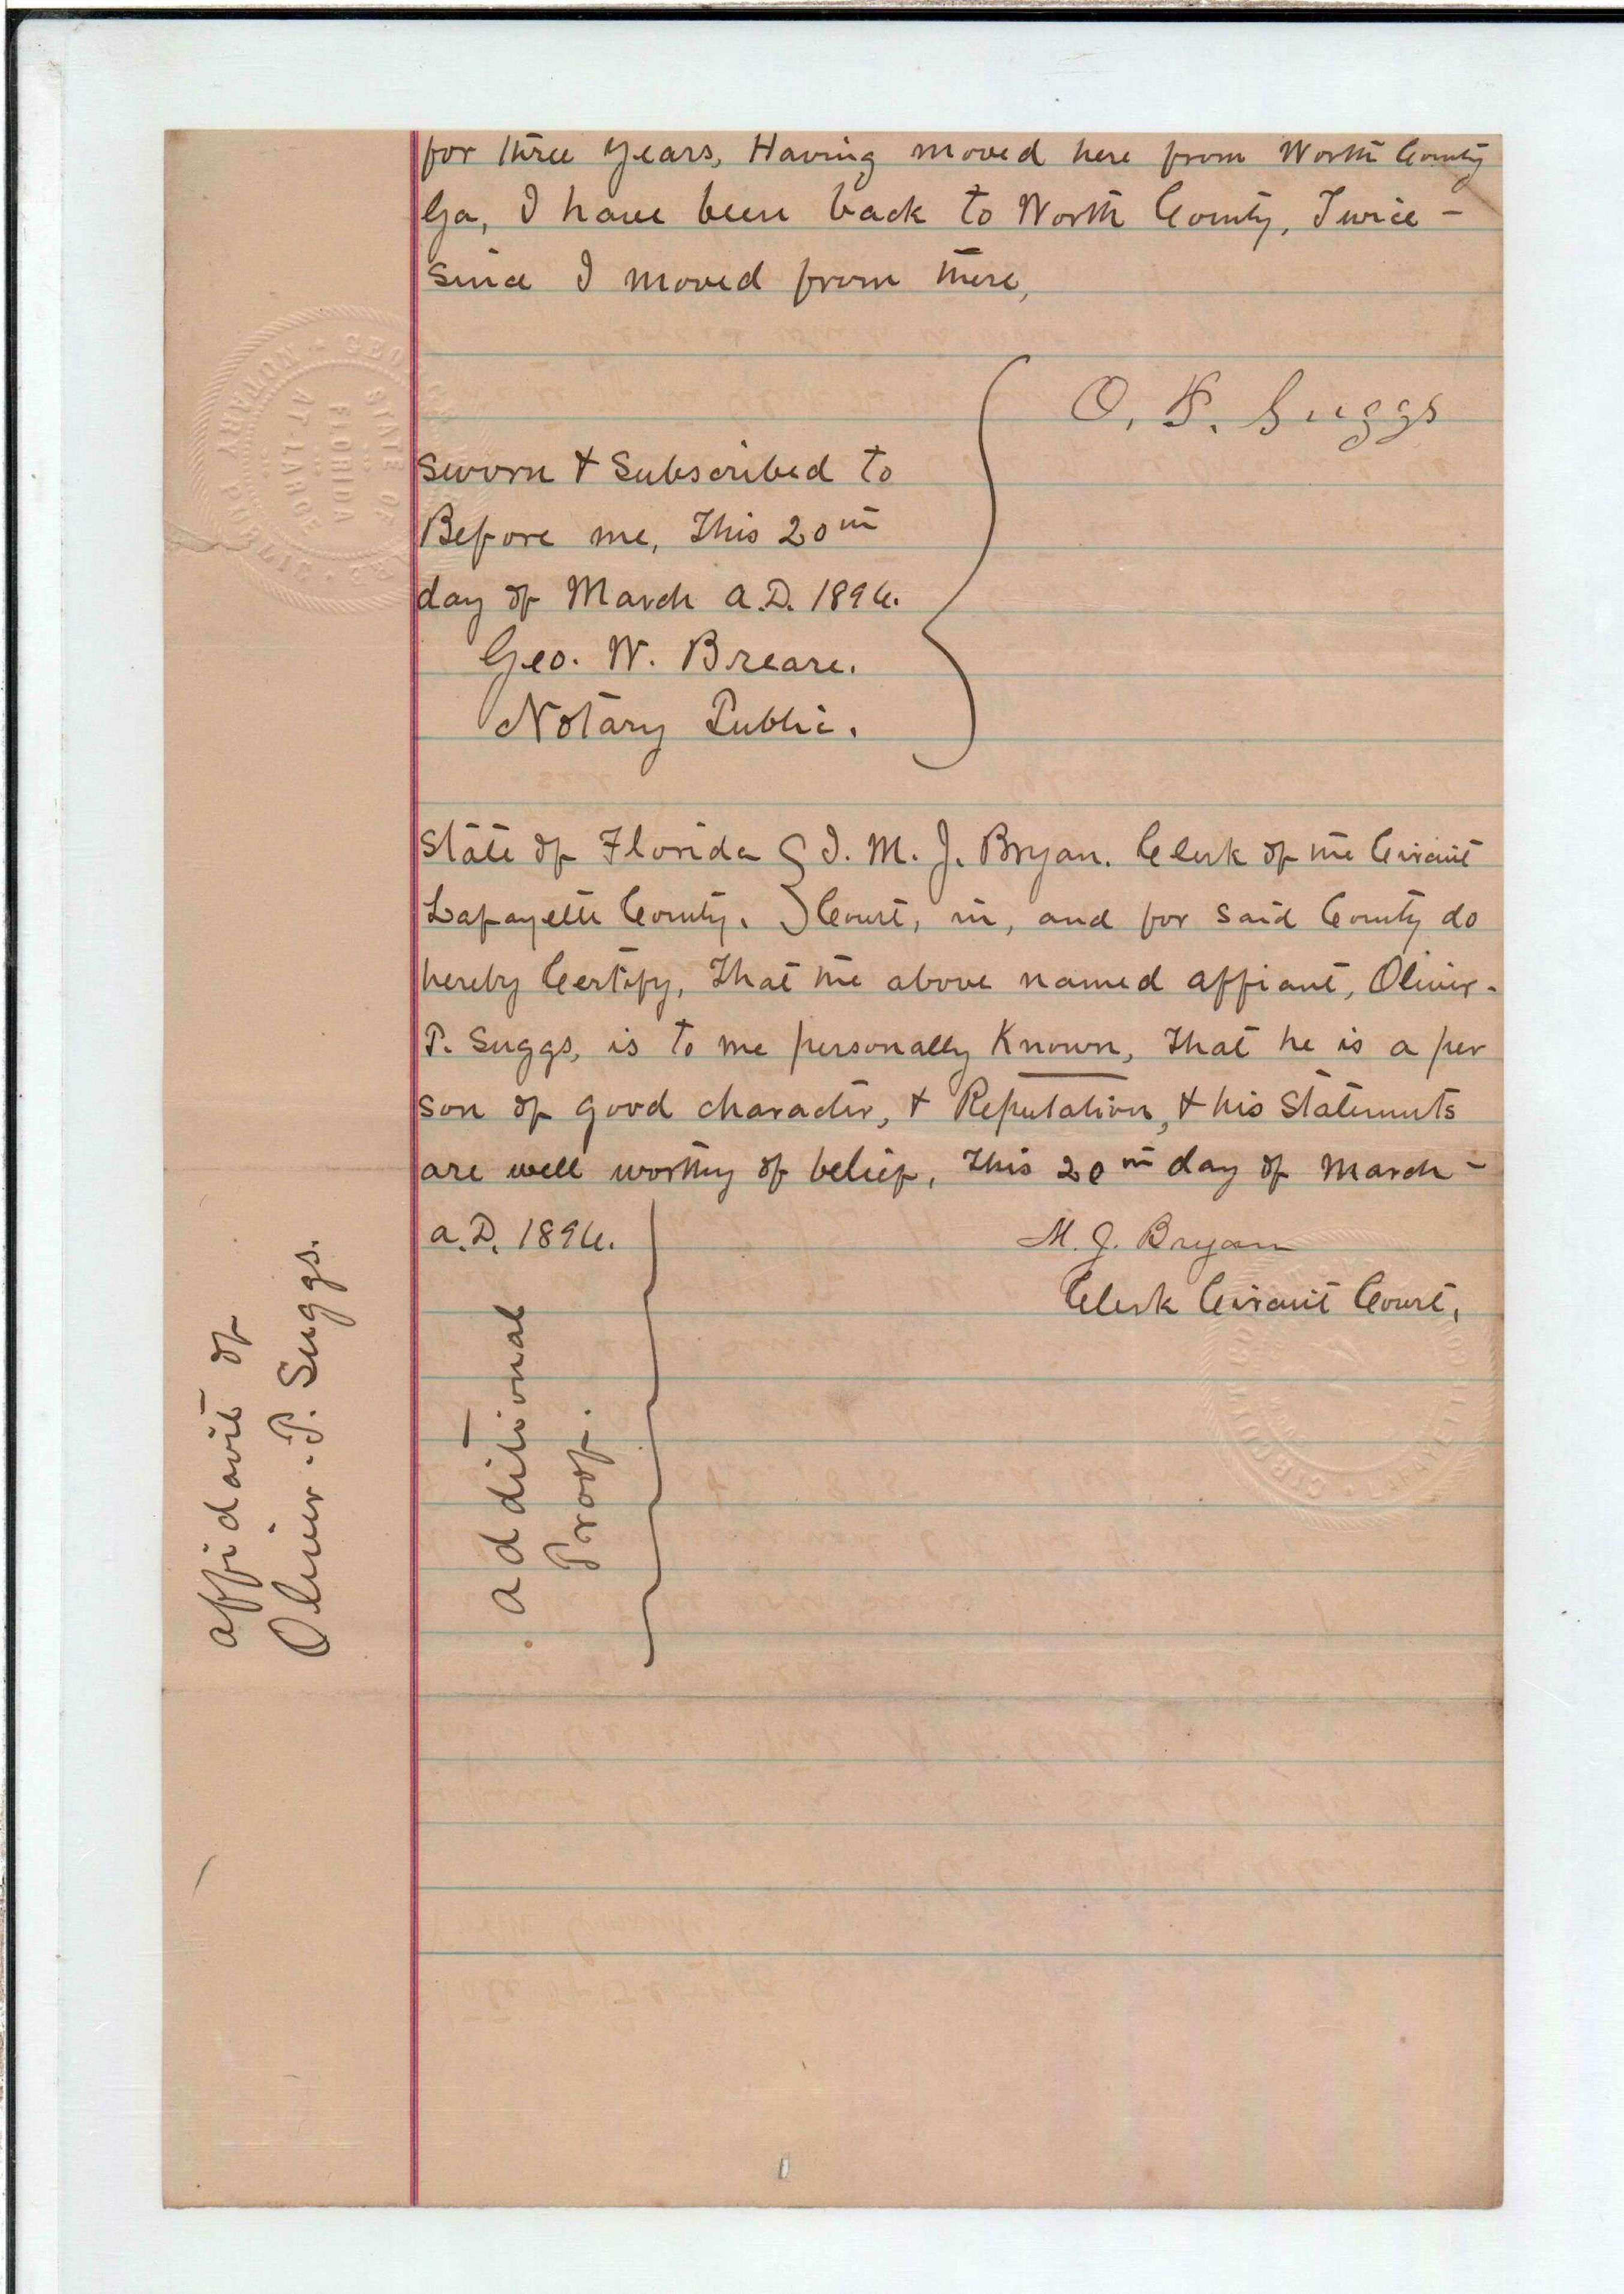 for three years, Having moved here from Worth County
Ga, I have been back to Worth County, Twice -
since I moved from there,
O. P. Suggs
Sworn & Subscribed to
Before me, This 20th
day of March A.D. 1896.
Geo. W. Breare.
Notary Public.
State of Florida } I. M. J. Bryan. Clerk of the Circuit
Lafayette County. } Court, in, and for said County do
hereby Certify, That the above named affiant, Oliver -
P. Suggs, is to me personally Known, That he is a per
son of good character, & Reputation, & his Statements
are well worthy of belief, This 20th day of March -
A.D. 1896.
M. J. Bryan
Clerk Circuit Court,
additional
Proof.
affidavit of
Oliver. P. Suggs.
NOTARY PUBLIC
STATE OF
FLORIDA
AT LARGE